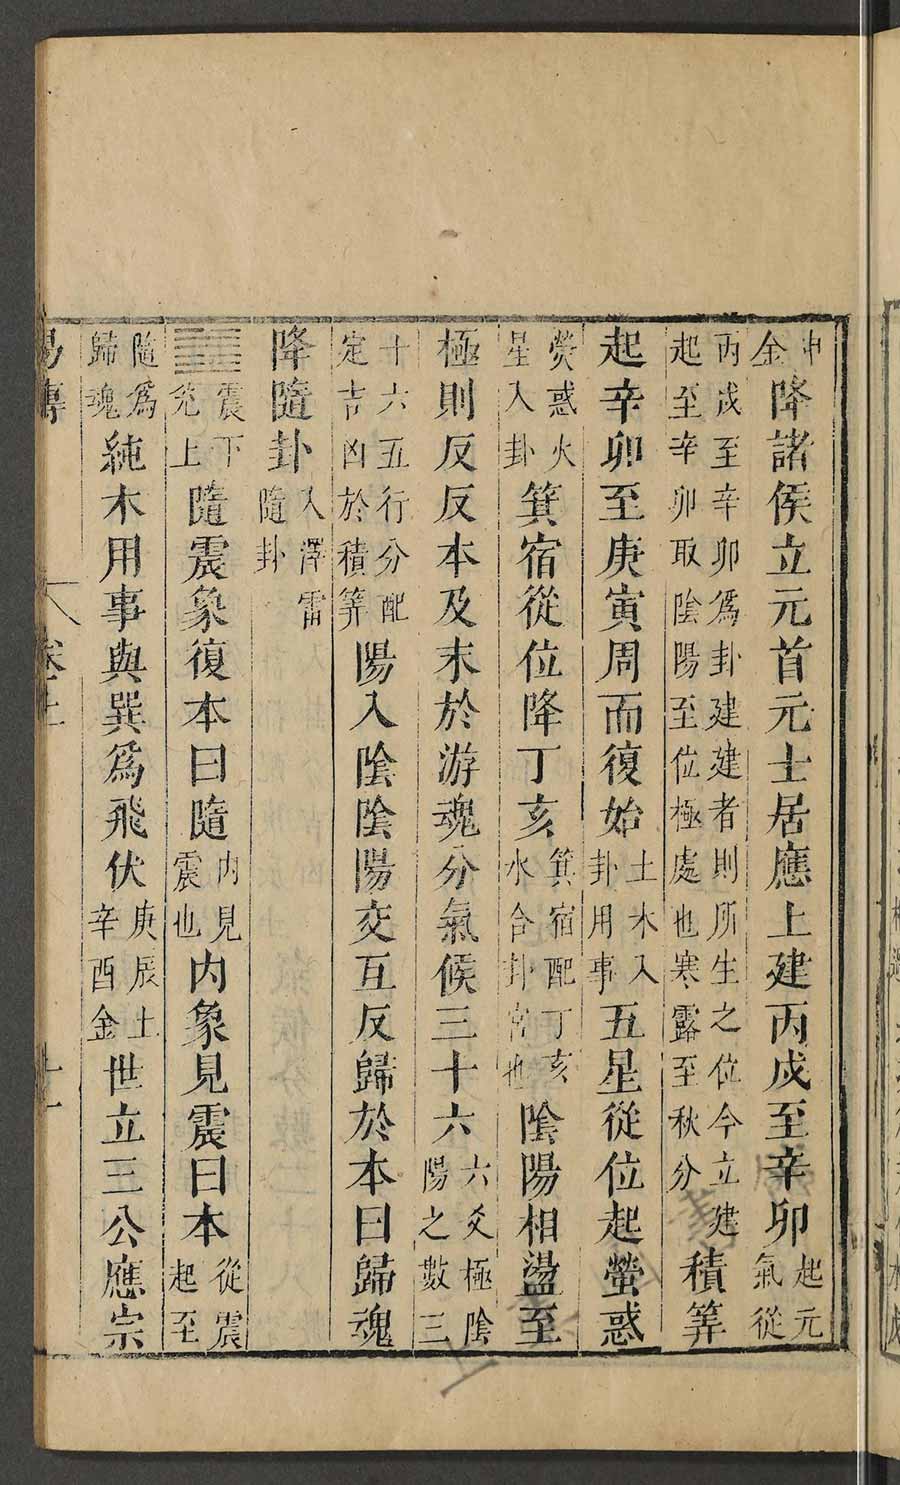 申金降諸侯立元首元士居應上建丙戌至辛卯起元氣從
丙戌至辛卯爲卦建建者則所生之位今立建起至辛卯取陰陽至位極處也寒露至秋分積筭
起辛卯至庚寅周而復始土木入卦用事五星從位起螢惑
熒惑火星入卦箕宿從位降丁亥箕宿配丁亥水合卦宮也陰陽相盪至
極則反反本及末於游魂分氣候三十六六爻極陰陽之數三
十六五行分配定吉凶於積筭陽入陰陰陽交互反歸於本曰歸魂
降隨卦入澤雷隨卦
䷐震下兌上隨震象復本曰隨内見震也内象見震曰本從震起至
隨爲歸魂純木用事與巽爲飛伏庚辰土辛酉金世立三公應宗
易傳 卷上 十一